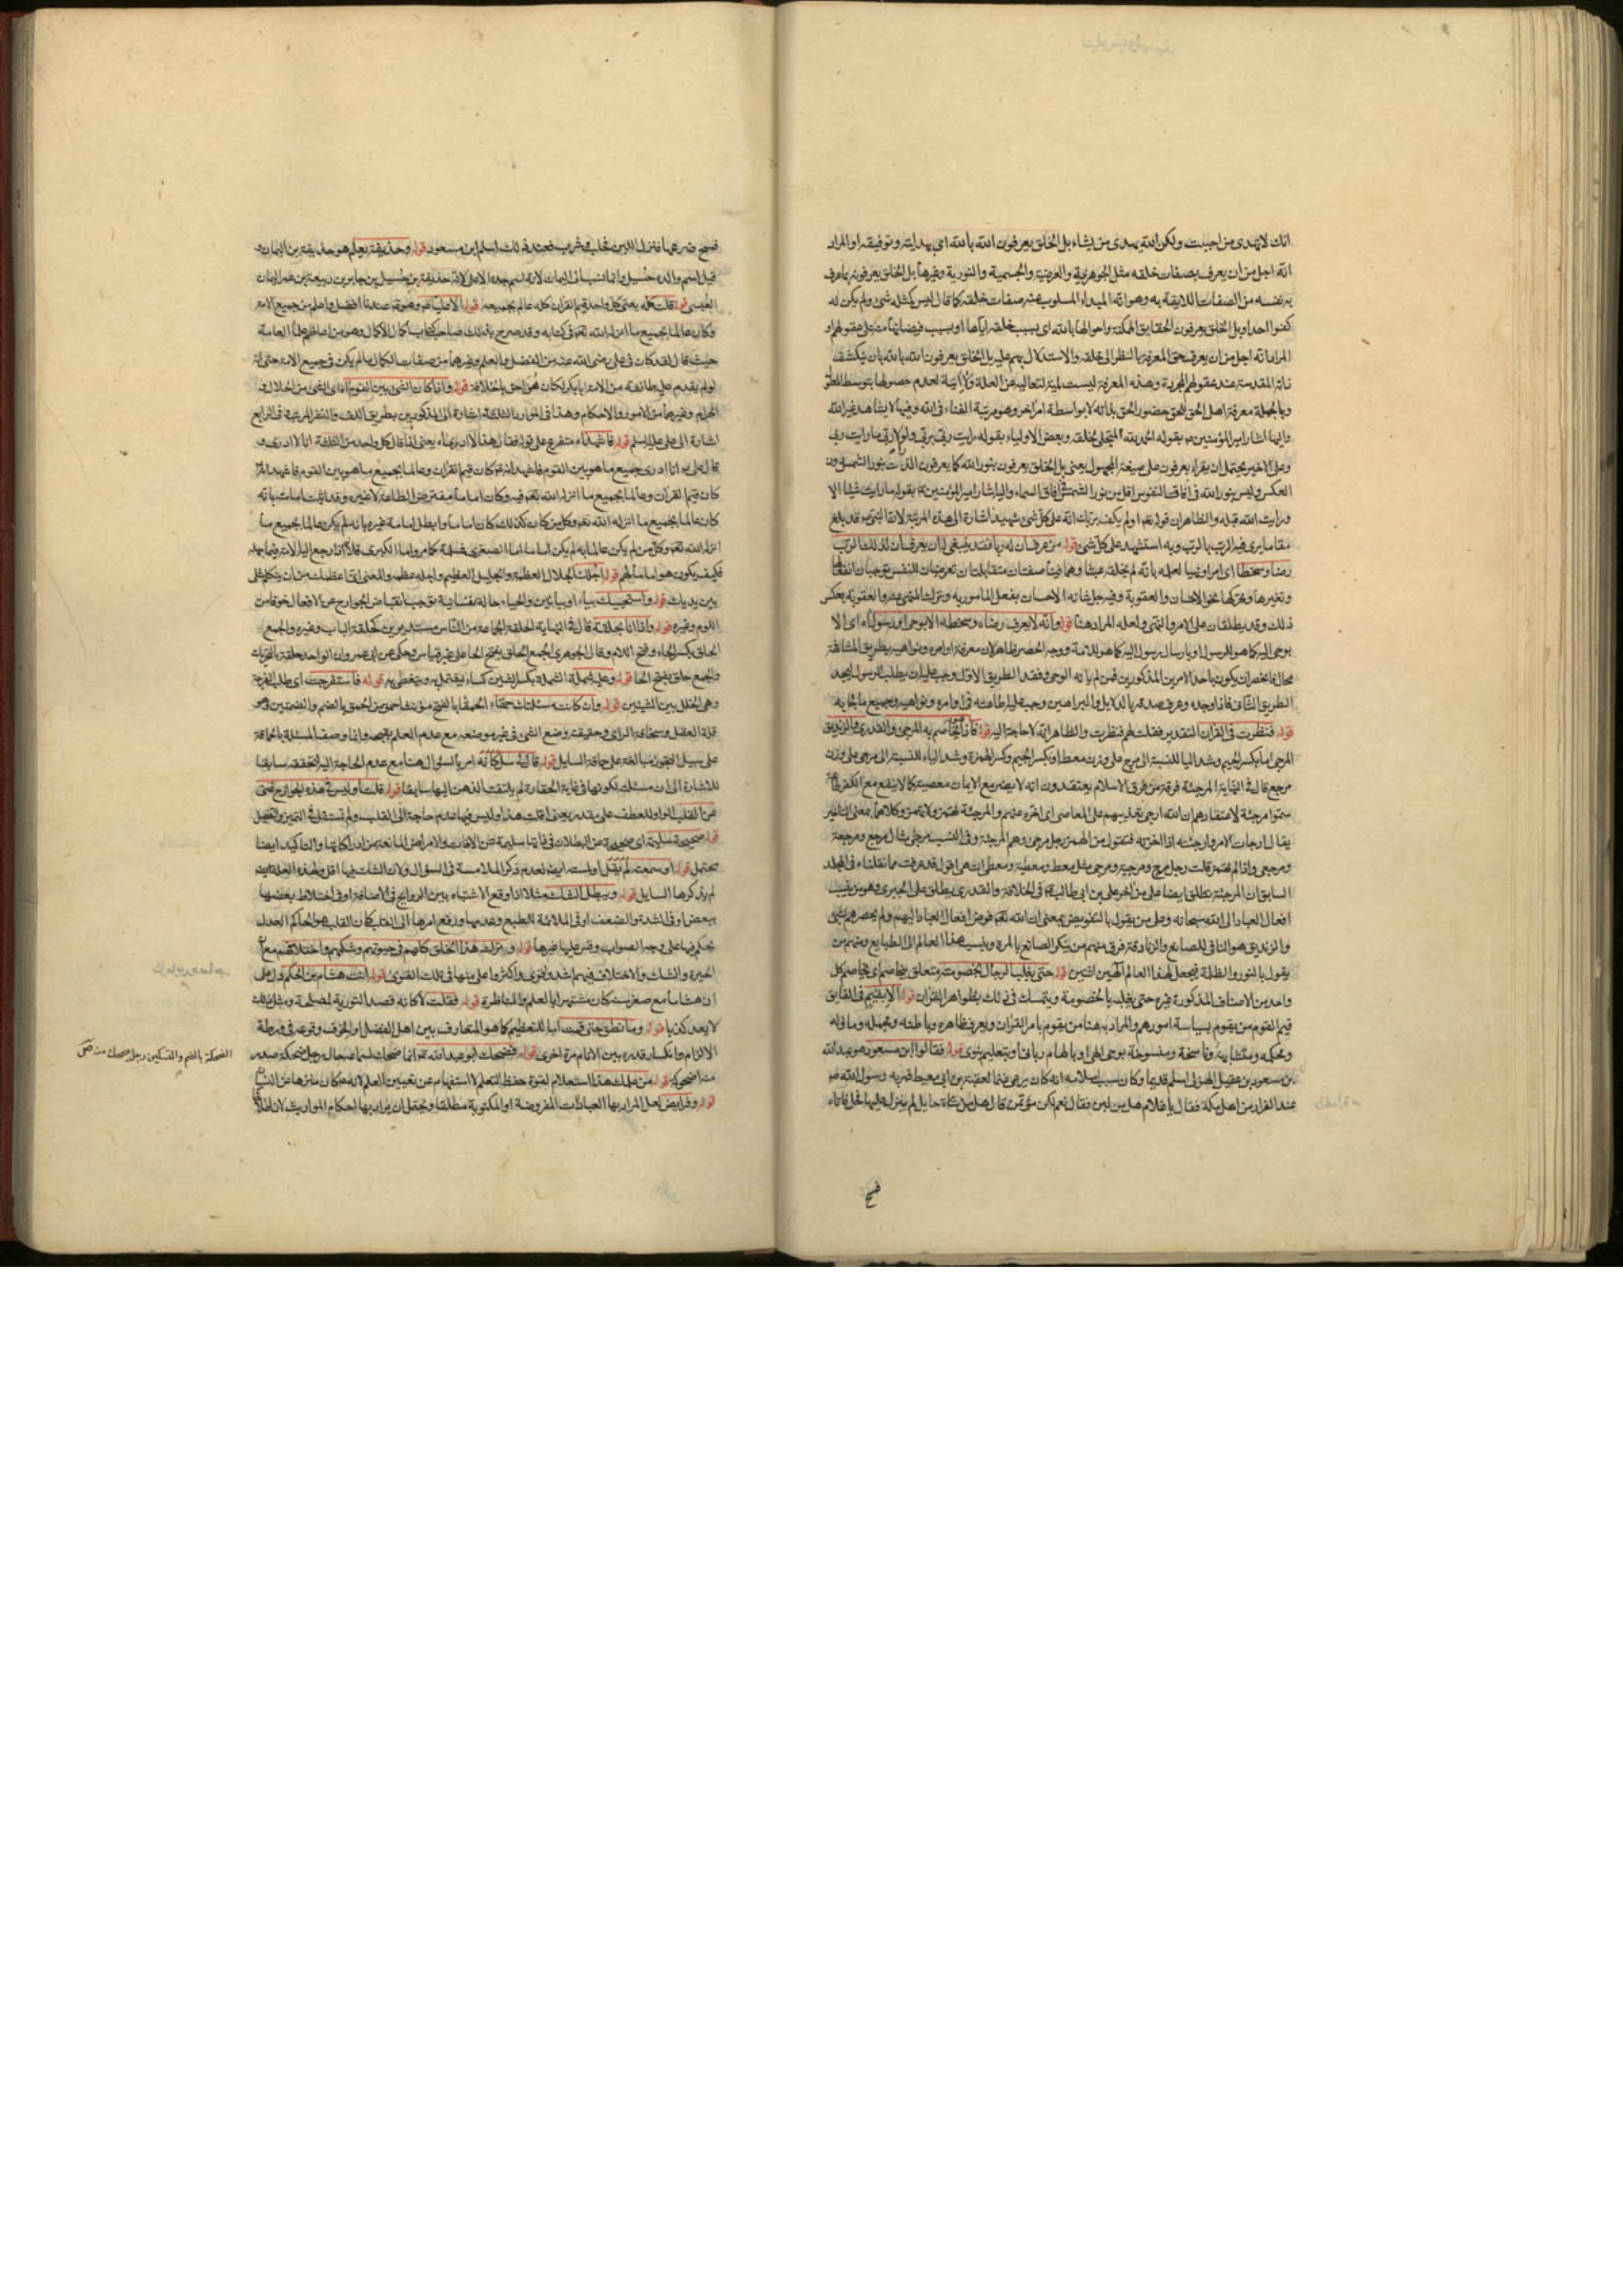 انك لا تهدى من احببت ولكن الله يهدى من يشاء بل الخلق يعرفون الله بالله اى بهدايته وتوفيقه او المراد
انه اجل من ان يعرف بصفات خلقه مثل الجوهرية والعرضية والجسمية والنورية وغيرها بل الخلق يعرفونه بما عرف
به نفسه من الصفات اللايقة به وهو انه المبداء المسلوب عنه صفات خلقه كما قال ليس كمثله شئ ولم يكن له
كفوا احد او بل الخلق يعرفون الحقايق الممكنة واحوالها بالله اى بسبب خلقه اياها او بسبب فيضانها منه على عقولهم او
المراد انه اجل من ان يعرف حق المعرفة بالنظر الى خلقه والاستدلال بهم عليه بل الخلق يعرفون الله بالله بان ينكشف
ذاته المقدسة عند عقولهم المجردة وهذه المعرفة ليست لمية لتعاليه عن العلة ولا انية لعدم حصولها بتوسط المعلول
وبالجملة معرفة اهل الحق للحق حضور الحق بذاته لا بواسطة امر اخر وهو مرتبة الفناء فى الله وفيها لا يشاهد غير الله
واليها اشار امير المؤمنين بقوله الحمد لله المتجلى لخلقه وبعض الاولياء بقوله رايت ربى بربى ولولا ربى ما رايت ربى
وعلى الاخير يحتمل ان يقراء يعرفون على صيغة المجهول يعنى بل الخلق يعرفون بنور الله كما يعرفون الذرات بنور الشمس دون
العكس وليس نور الله فى آفاق النفوس اقل من نور الشمس فى افاق السماء واليه اشار امير المؤمنين بقوله ما رايت شيئا الا
ورايت الله قبله والظاهر ان قوله تعالى اولم يكف بربك انه على كل شئ شهيد اشارة الى هذه المرتبة لان النبى قد بلغ
مقاما يرى فيه الرب بالرب وبه استشهد على كل شئ قوله من عرف ان له ربا فقد ينبغى له ان يعرف ان لذلك الرب
رضا وسخطا اى امرا ونهيا لعلمه بانه لم يخلقه عبثا وهما فينا صفتان متقابلتان تعرضان للنفس توجبان انفعالها
وتغيرها وتحركها نحو الاحسان والعقوبة وفيه جل شانه الاحسان بفعل المامور به وترك المنهى عنه والعقوبة بعكس
ذلك وقد يطلقان على الامر والنهى ولعله المراد هنا قوله وانه لا يعرف رضاه وسخطه الا بوحى او رسول اى الا
بوحى اليه كما هو للرسول او بارسال رسول اليه كما هو للامة ووجه الحصر ظاهر لان معرفة اوامره ونواهيه بطريق المشافهة
محال فانحصر ان يكون باحد الامرين المذكورين فمن لم ياته الوحى وفقد الطريق الاول وجب عليه ان يطلب الرسول ليجد
الطريق الثانى فاذا وجده وعرف صدقه بالدلايل والبراهين وجب عليه طاعته فى اوامره ونواهيه وجميع ما جاء به
قوله فنظرت فى القران التقدير فقلت لهم فنظرت والظاهر انه لا حاجة اليه قوله فاذا هو يخاصم به المرجئ والقدرى والزنديق
المرجى اما بكسر الجيم وشد اليا للنسبة الى مرج على وزن معط او بكسر الجيم وكسر الهمزة وشد الياء للنسبة الى مرجئ على وزن
مرجع قال فى النهاية المرجئة فرقة من فرق الاسلام يعتقدون انه لا يضر مع الايمان معصية كما لا ينفع مع الكفر طاعة
سموا مرجئة لاعتقادهم ان الله ارجى تعذيبهم على المعاصى اى اخره عنهم والمرجئة تهمز ولا تهمز وكلاهما بمعنى التاخير
يقال ارجات الامر وارجيته اذا اخرته فتقول من الهمز رجل مرجئ وهم المرجئة وفى النسب مرجئى مثال مرجع ومرجعة
ومرجعى واذا لم تهمز قلت رجل مرج ومرجية ومرجى مثل معط ومعطية ومعطى انتهى اقول قد عرفت مما نقلناه فى المجلد
السابق ان المرجئة تطلق ايضا على من اخر على بن ابى طالب فى الخلافة والقدرى يطلق على الجبرى وهو من ينسب
افعال العباد الى الله سبحانه وعلى من يقول بالتفويض بمعنى ان الله تعالى فوض افعال العباد اليهم ولم يحصرهم بشئ
والزنديق هو النافى للصانع والزنادقة فرق منهم من ينكر الصانع بالمرة وينسب هذا العالم الى الطبايع ومنهم من
يقول بالنور والظلمة فيجعل لهذا العالم الهين اثنين قوله حتى يغلب الرجال بخصومته متعلق بيخاصم اى يخاصم كل
واحد من الاصناف المذكورة غيره حتى يغلبه بالخصومة ويتمسك فى ذلك بظواهر القران قوله الا بقيم فى الفايق
قيم القوم من يقوم بسياسة امورهم والمراد به هنا من يقوم بامر القران ويعرف ظاهره وباطنه ومجمله وماوله
ومحكمه ومتشابهه وناسخه ومنسوخه بوحى الهى او بالهام ربانى او بتعليم نبوى قوله فقالوا ابن مسعود هو عبد الله
بن مسعود بن عقيل الهذلى اسلم قديما وكان سبب اسلامه انه كان يرعى غنما لعقبة بن ابى معيط فمر به رسول الله
عند الفرار من اهل مكة فقال يا غلام هل من لبن فقال نعم لكن مؤتمن قال هل من شاة حايل لم ينزل عليها فحل فاتاه
فمسح
فمسح ضرعها فنزل اللبن فحلب وشرب فعند ذلك اسلم ابن مسعود قوله وحذيفة يعلم هو حذيفة بن اليمان
قيل اسم والده حسيل وانما نسب الى اليمان لانه اسم جده الاعلى لانه حذيفة بن حسيل بن جابر بن ربيعة بن عمر اليمان
العبسى قوله قلت كله يعنى كل واحد قيم القران كله عالم بجميعه قوله الا عليا فهو عندنا افضل واعلم من جميع الامة
وكان عالما بجميع ما انزله الله تعالى فى كتابه وقد صرح بذلك صاحب كتاب اكمال الاكمال وهو من اعاظم علماء العامة
حيث قال لقد كان فى على رضى الله عنه من الفضل والعلم وغيرهما من صفات الكمال ما لم يكن فى جميع الامة حتى انه
لو لم يقدم عليه طائفة من الامة ابا بكر لكان هو احق بالخلافة قوله واذا كان الشئ بين القوم اى الشئ من الحلال و
الحرام وغيرهما من الامور والاحكام وهذا فى الموارد الثلثة اشارة الى المذكورين بطريق اللف والنشر المرتب وفى الرابع
اشارة الى على عليه السلم قوله فاشهد متفرع على قوله فقال هذا لا ادرى
قال على انا ادرى جميع ما هو بين القوم فاشهد انه كان قيم القران وعالما بجميع ما هو بين القوم فاشهد انه
كان قيم القران وعالما بجميع ما انزله الله تعالى فيه وكان اماما مفترض الطاعة لا غيره وقد اثبت امامته بانه
كان عالما بجميع ما انزله الله تعالى وكل من كان كذلك كان اماما وابطل امامة غيره بانه لم يكن عالما بجميع ما
انزله الله تعالى وكل من لم يكن عالما به لم يكن اماما اما الصغرى فمسلمة كما مر واما الكبرى فلانه اذا رجع اليه الامة فيما جهله
فكيف يكون هو اماما لهم قوله اجلك الجلال العظمة والجليل العظيم واجله عظمه والمعنى انى اعظمك من ان يتكلم مثلى
بين يديك قوله واستحييك بياء او بيائين والحياء حالة نفسانية توجب انقباض الجوارح عن الافعال خوفا من
اللوم وغيره قوله واذا انا بحلقة قال فى النهاية الحلقة الجماعة من الناس مستديرين كحلقة الباب وغيره والجمع
الحلق بكسر الحاء وفتح اللام وقال الجوهرى الجمع الحلق بفتح الحا على غير قياس وحكى عن ابى عمرو ان الواحد حلقة بالتحريك
والجمع حلق بفتح الحا قوله وعليه شملة الشملة بكسر الشين كساء يشتمل به ويتغطى به قوله فاستفرجت اى طلب الفرجة
وهى الخلل بين الشيئين قوله وان كانت مسئلتك حمقاء الحمقا بالفتح مؤنث احمق من الحمق بالضم والضمتين وهو
قلة العقل وسخافة الراى وحقيقته وضع الشئ فى غير موضعه مع عدم العلم بقبحه وانما وصف المسئلة بالحماقة
على سبيل التجوز مبالغة على حماقة السايل قوله قال لى سل كانه امر بالسؤال هنا مع عدم الحاجة اليه لتحققه سابقا
للاشارة الى ان مسئلتك لكونها فى غاية الحقارة لم يلتفت الذهن اليها سابقا قوله قلت أوليس فى هذه الجوارح غنى
عن القلب الواو للعطف على مقدر يعنى اقلت هذا وليس فيها عدم حاجة الى القلب ولم تستقل فى التميز والفصل
قوله صحيحة سليمة اى صحيحة عن البطلان فى ذاتها سليمة عن الافات والامراض المانعة من ادراكاتها والتاكيد ايضا
محتمل قوله او سمعته لم يقل او لمسته ايضا لعدم ذكر الملامسة فى السؤال ولان الشك فيها اقل ولهذه العلة ايضا
لم يذكرها السايل قوله ويبطل الشك مثلا اذا وقع الاشتباه بين الروايح فى الاضافة او فى اختلاط بعضها
ببعض او فى الشدة والضعف او فى الملائمة للطبع وعدمها ورفع امرها الى القلب كان القلب هو الحاكم العدل
يحكم فيها على وجه الصواب وقس عليها غيرها قوله ويترك هذا الخلق كلهم فى حيرتهم وشكهم واختلافهم مع ان
الحيرة والشك والاختلاف فيهم اشد واقوى واكثر واعلى منها فى تلك القوى قوله انت هشام بن الحكم دل على
ان هشاما مع صغر سنه كان مشتهرا بالعلم والمناظرة قوله فقلت لا كانه قصد التورية لمصلحة ومثل ذلك
لا يعد كذبا قوله وما نطق حتى قمت اما للتعظيم كما هو المتعارف بين اهل الفضل او الخوف وقوعه فى ورطة
الالزام وانكسار قدره بين الانام مرة اخرى قوله فضحك ابو عبد الله انما ضحك لسماعه حال رجل ضحكة صدر
منه اضحوكة قوله من علمك هذا استعلام لقوة حفظ المتعلم لا استفهام عن تعيين المعلم لانه كان منزها عن النسيان
قوله وفرايض لعل المراد بها العبادات المفروضة او المكتوبة مطلقا ويحتمل ان يراد بها احكام المواريث لان اطلاق
الضحكة بالضم والتسكين رجل يضحك منه